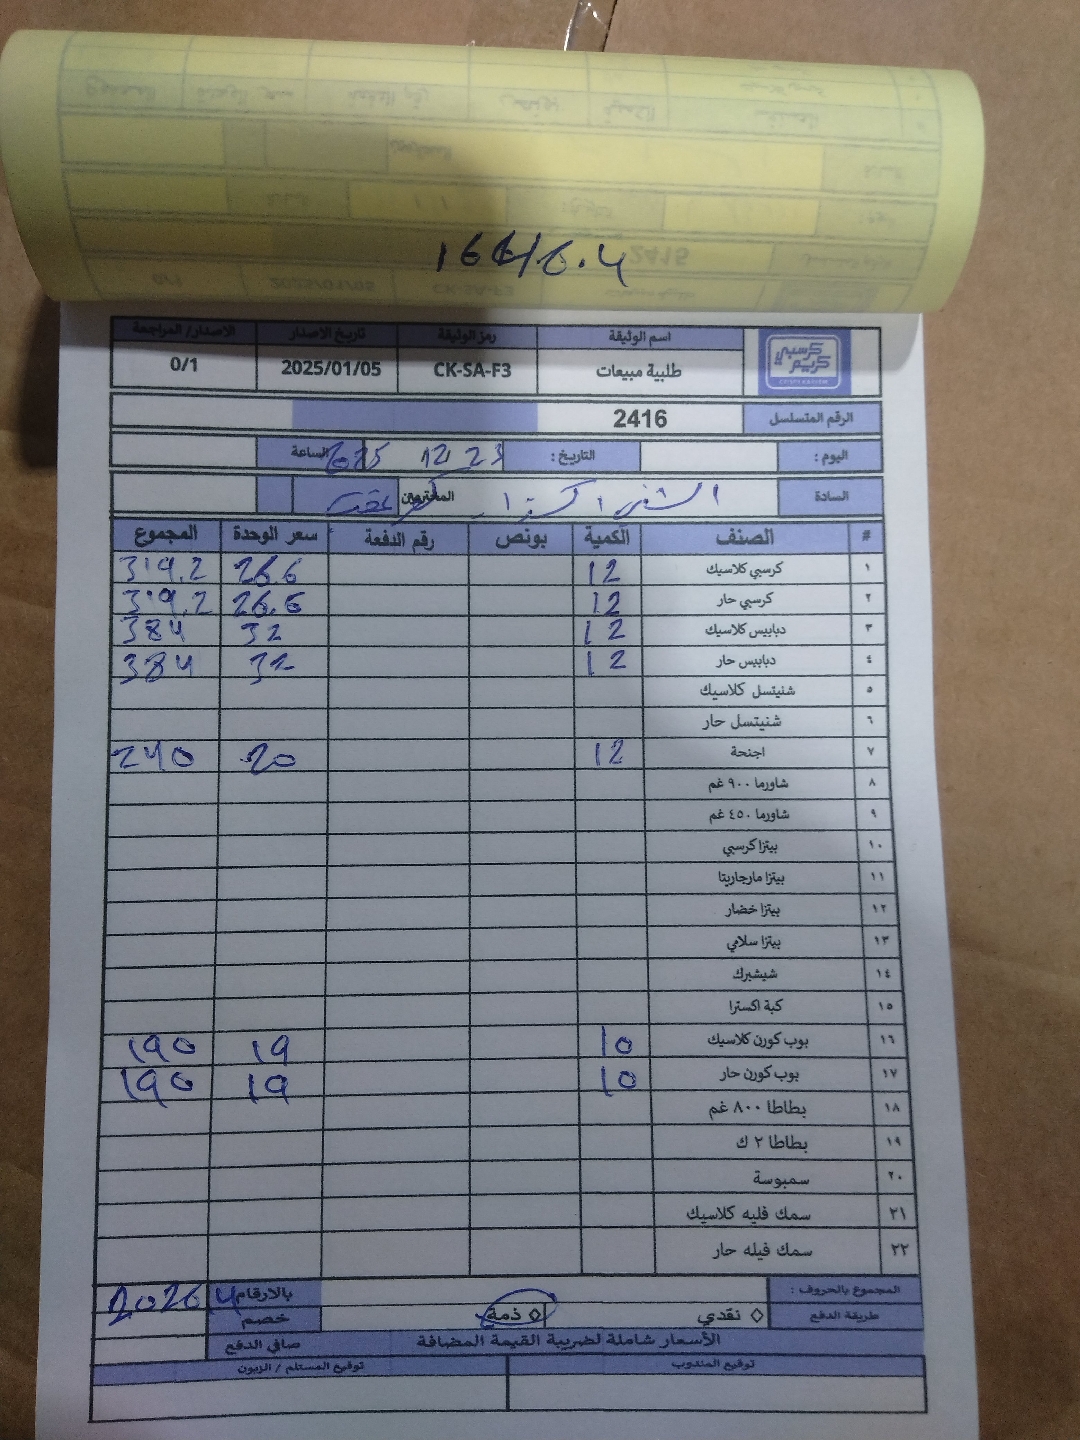 اسم الوثيقة رمز الوثيقة تاريخ الاصدار الاصدار/ المراجعة
كرسبي كريم
طلبية مبيعات CK-SA-F3 2025/01/05 0/1
الرقم المتسلسل 2416
اليوم : التاريخ : 23 12 الساعة
السادة المحترمين
# الصنف الكمية بونص رقم الدفعة سعر الوحدة المجموع
١ كرسبي كلاسيك 12 26.6 319.2
٢ كرسبي حار 12 26.6 319.2
٣ دبابيس كلاسيك 12 32 384
٤ دبابيس حار 12 32 384
٥ شنيتسل كلاسيك
٦ شنيتسل حار
٧ اجنحة 12 20 240
٨ شاورما ٩٠٠ غم
٩ شاورما ٤٥٠ غم
١٠ بيتزا كرسبي
١١ بيتزا مارجاريتا
١٢ بيتزا خضار
١٣ بيتزا سلامي
١٤ شيشبرك
١٥ كبة اكسترا
١٦ بوب كورن كلاسيك 10 19 190
١٧ بوب كورن حار 10 19 190
١٨ بطاطا ٨٠٠ غم
١٩ بطاطا ٢ ك
٢٠ سمبوسة
٢١ سمك فليه كلاسيك
٢٢ سمك فيله حار
المجموع بالحروف : بالارقام 2026.4
طريقة الدفع ◊ نقدي ◊ ذمة خصم
الأسعار شاملة لضريبة القيمة المضافة صافي الدفع
توقيع المندوب توقيع المستلم / الزبون